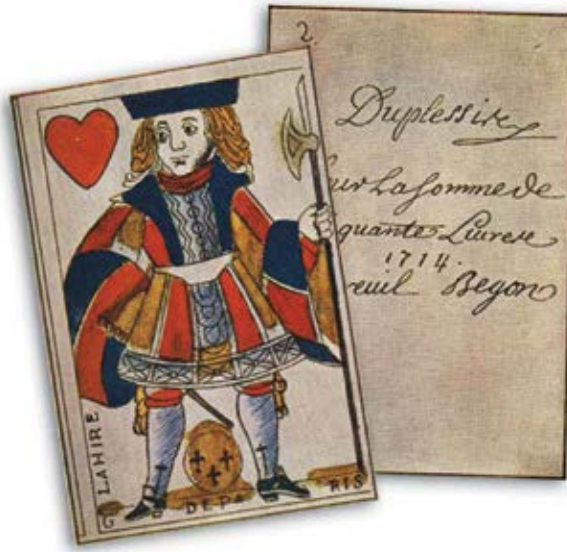 LAHIRE
DE PA RIS
2
Duplessis
la somme de
quante Livres
1714.
euil Begon